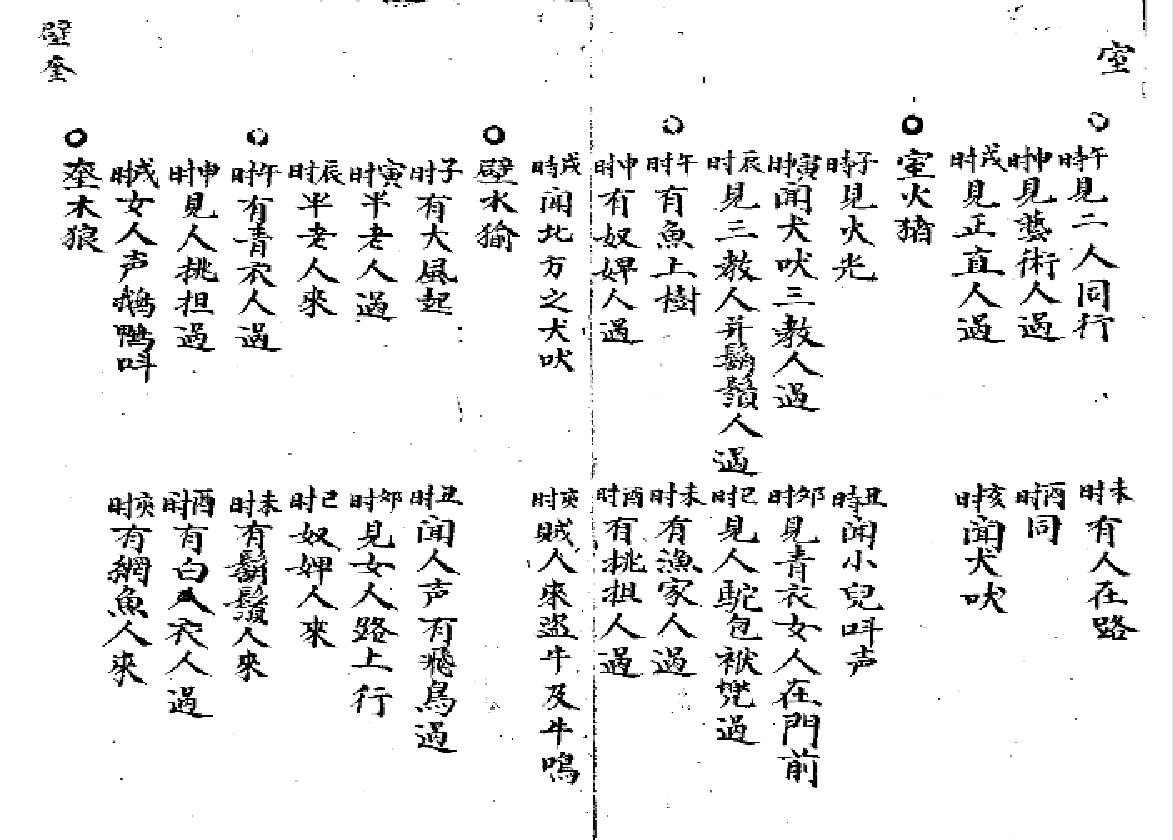 室
午时見二人同行
未时有人在路
申时見藝術人過
酉时同
戌时見正直人過
亥时聞犬吠
室火猪
子時見火光
丑時聞小兒呌声
寅時聞犬吠三教人過
卯时見青衣女人在門前
辰时見三教人并鬍鬚人過
巳时見人駝包袱兠過
午时有魚上樹
未时有漁家人過
申时有奴婢人過
酉时有挑担人過
戌時聞北方之犬吠
亥时賊人來盗牛及牛鳴
壁水㺄
子时有大風起
丑时聞人声有飛鳥過
寅时半老人過
卯时見女人路上行
辰时半老人來
巳时奴婢人來
午时有青衣人過
未时有鬍鬚人來
申时見人挑担過
酉时有白衣人過
戌时女人声鵝鴨呌
亥时有網魚人來
奎木狼
壁奎